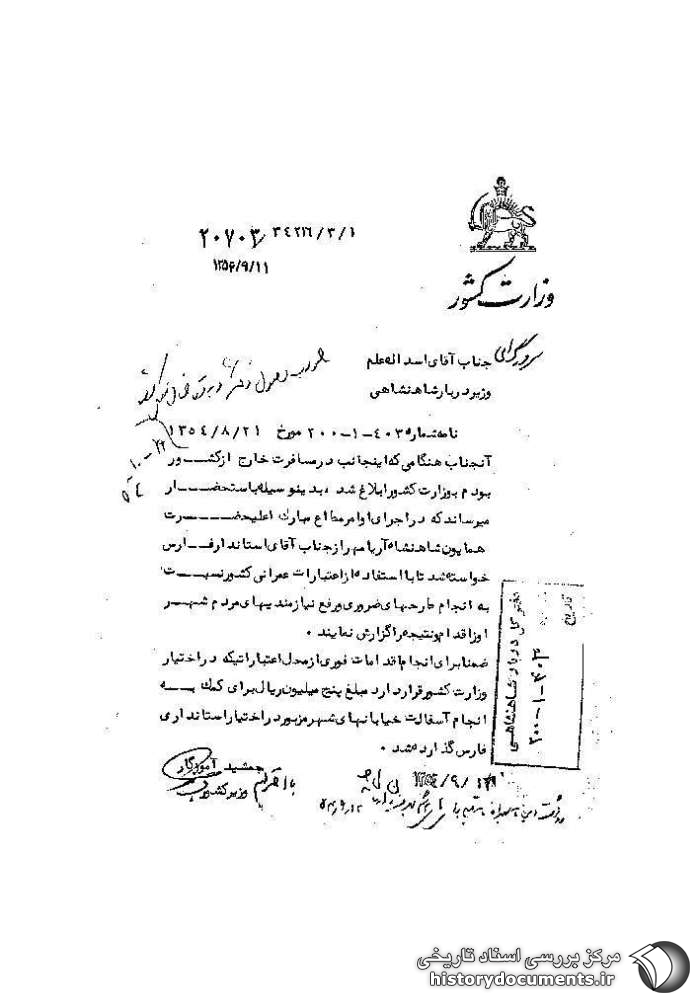 ۲۰۷۰۳ ۳۴۲۱۶/۳/۱
۱۳۵۴/۹/۱۱
وزارت کشور
سرور گرامی جناب آقای اسداله علم
وزیر دربار شاهنشاهی
نامه شماره ۴۰۳-۱-۲۰۰ مورخ ۱۳۵۴/۸/۲۱
آنجناب هنگامی که اینجانب در مسافرت خارج از کشور
بودم بوزارت کشور ابلاغ شد، بدینوسیله باستحضار
میرساند که در اجرای اوامر مطاع مبارک اعلیحضرت
همایون شاهنشاه آریامهر از جناب آقای استاندار فارس
خواسته شد تا با استفاده از اعتبارات عمرانی کشور نسبت
به انجام طرحهای ضروری و رفع نیازمندیهای مردم شهر
اوز اقدام و نتیجه را گزارش نمایند.
ضمنا برای انجام اقدامات فوری از محل اعتباراتیکه در اختیار
وزارت کشور قرار دارد مبلغ پنج میلیون ریال برای کمک به
انجام آسفالت خیابانهای شهر مزبور در اختیار استانداری
فارس گذارده شد.
با احترام
جمشید آموزگار
وزیر کشور
دفتر کل دربار شاهنشاهی
۲۰۰-۱-۴۰۳
تاریخ
مرکز بررسی اسناد تاریخی
historydocuments.ir